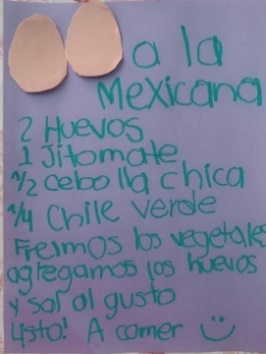 a la
Mexicana
2 Huevos
1 Jitomate
1/2 cebolla chica
1/4 Chile verde
Freimos los vegetales
agregamos los huevos
y sal al gusto
Listo! A comer